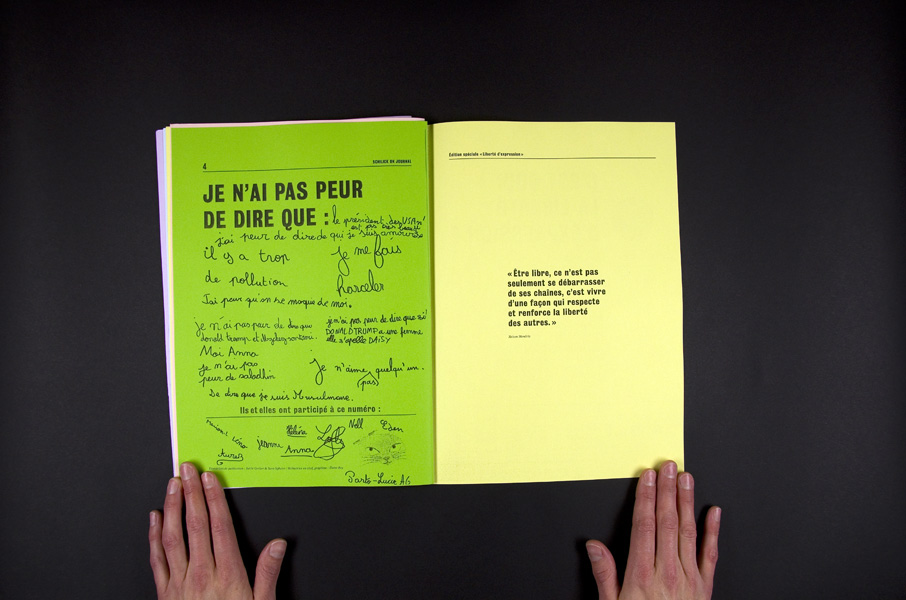 4
JE N'AI PAS PEUR
DE DIRE QUE :
le président des USA n'
est pas très
j'ai peur de dire de qui je suis amoureuse
il y a trop
je me fais
de pollution
harceler
J'ai peur qu'on se moque de moi.
je n'ai pas peur de dire que
donald trump
je n'ai pas peur de dire que
DONALD TRUMP a une femme
elle s'apelle DAISY
Moi Anna
je n'ai pas
peur de saladhin
je n'aime quelqu'un.
(pas)
De dire que je suis Musulmane.
Ils et elles ont participé à ce numéro :
Jeanne
Anna
Noll
Eden
Édition spéciale «Liberté d'expression»
«Être libre, ce n'est pas
seulement se débarrasser
de ses chaînes, c'est vivre
d'une façon qui respecte
et renforce la liberté
des autres.»